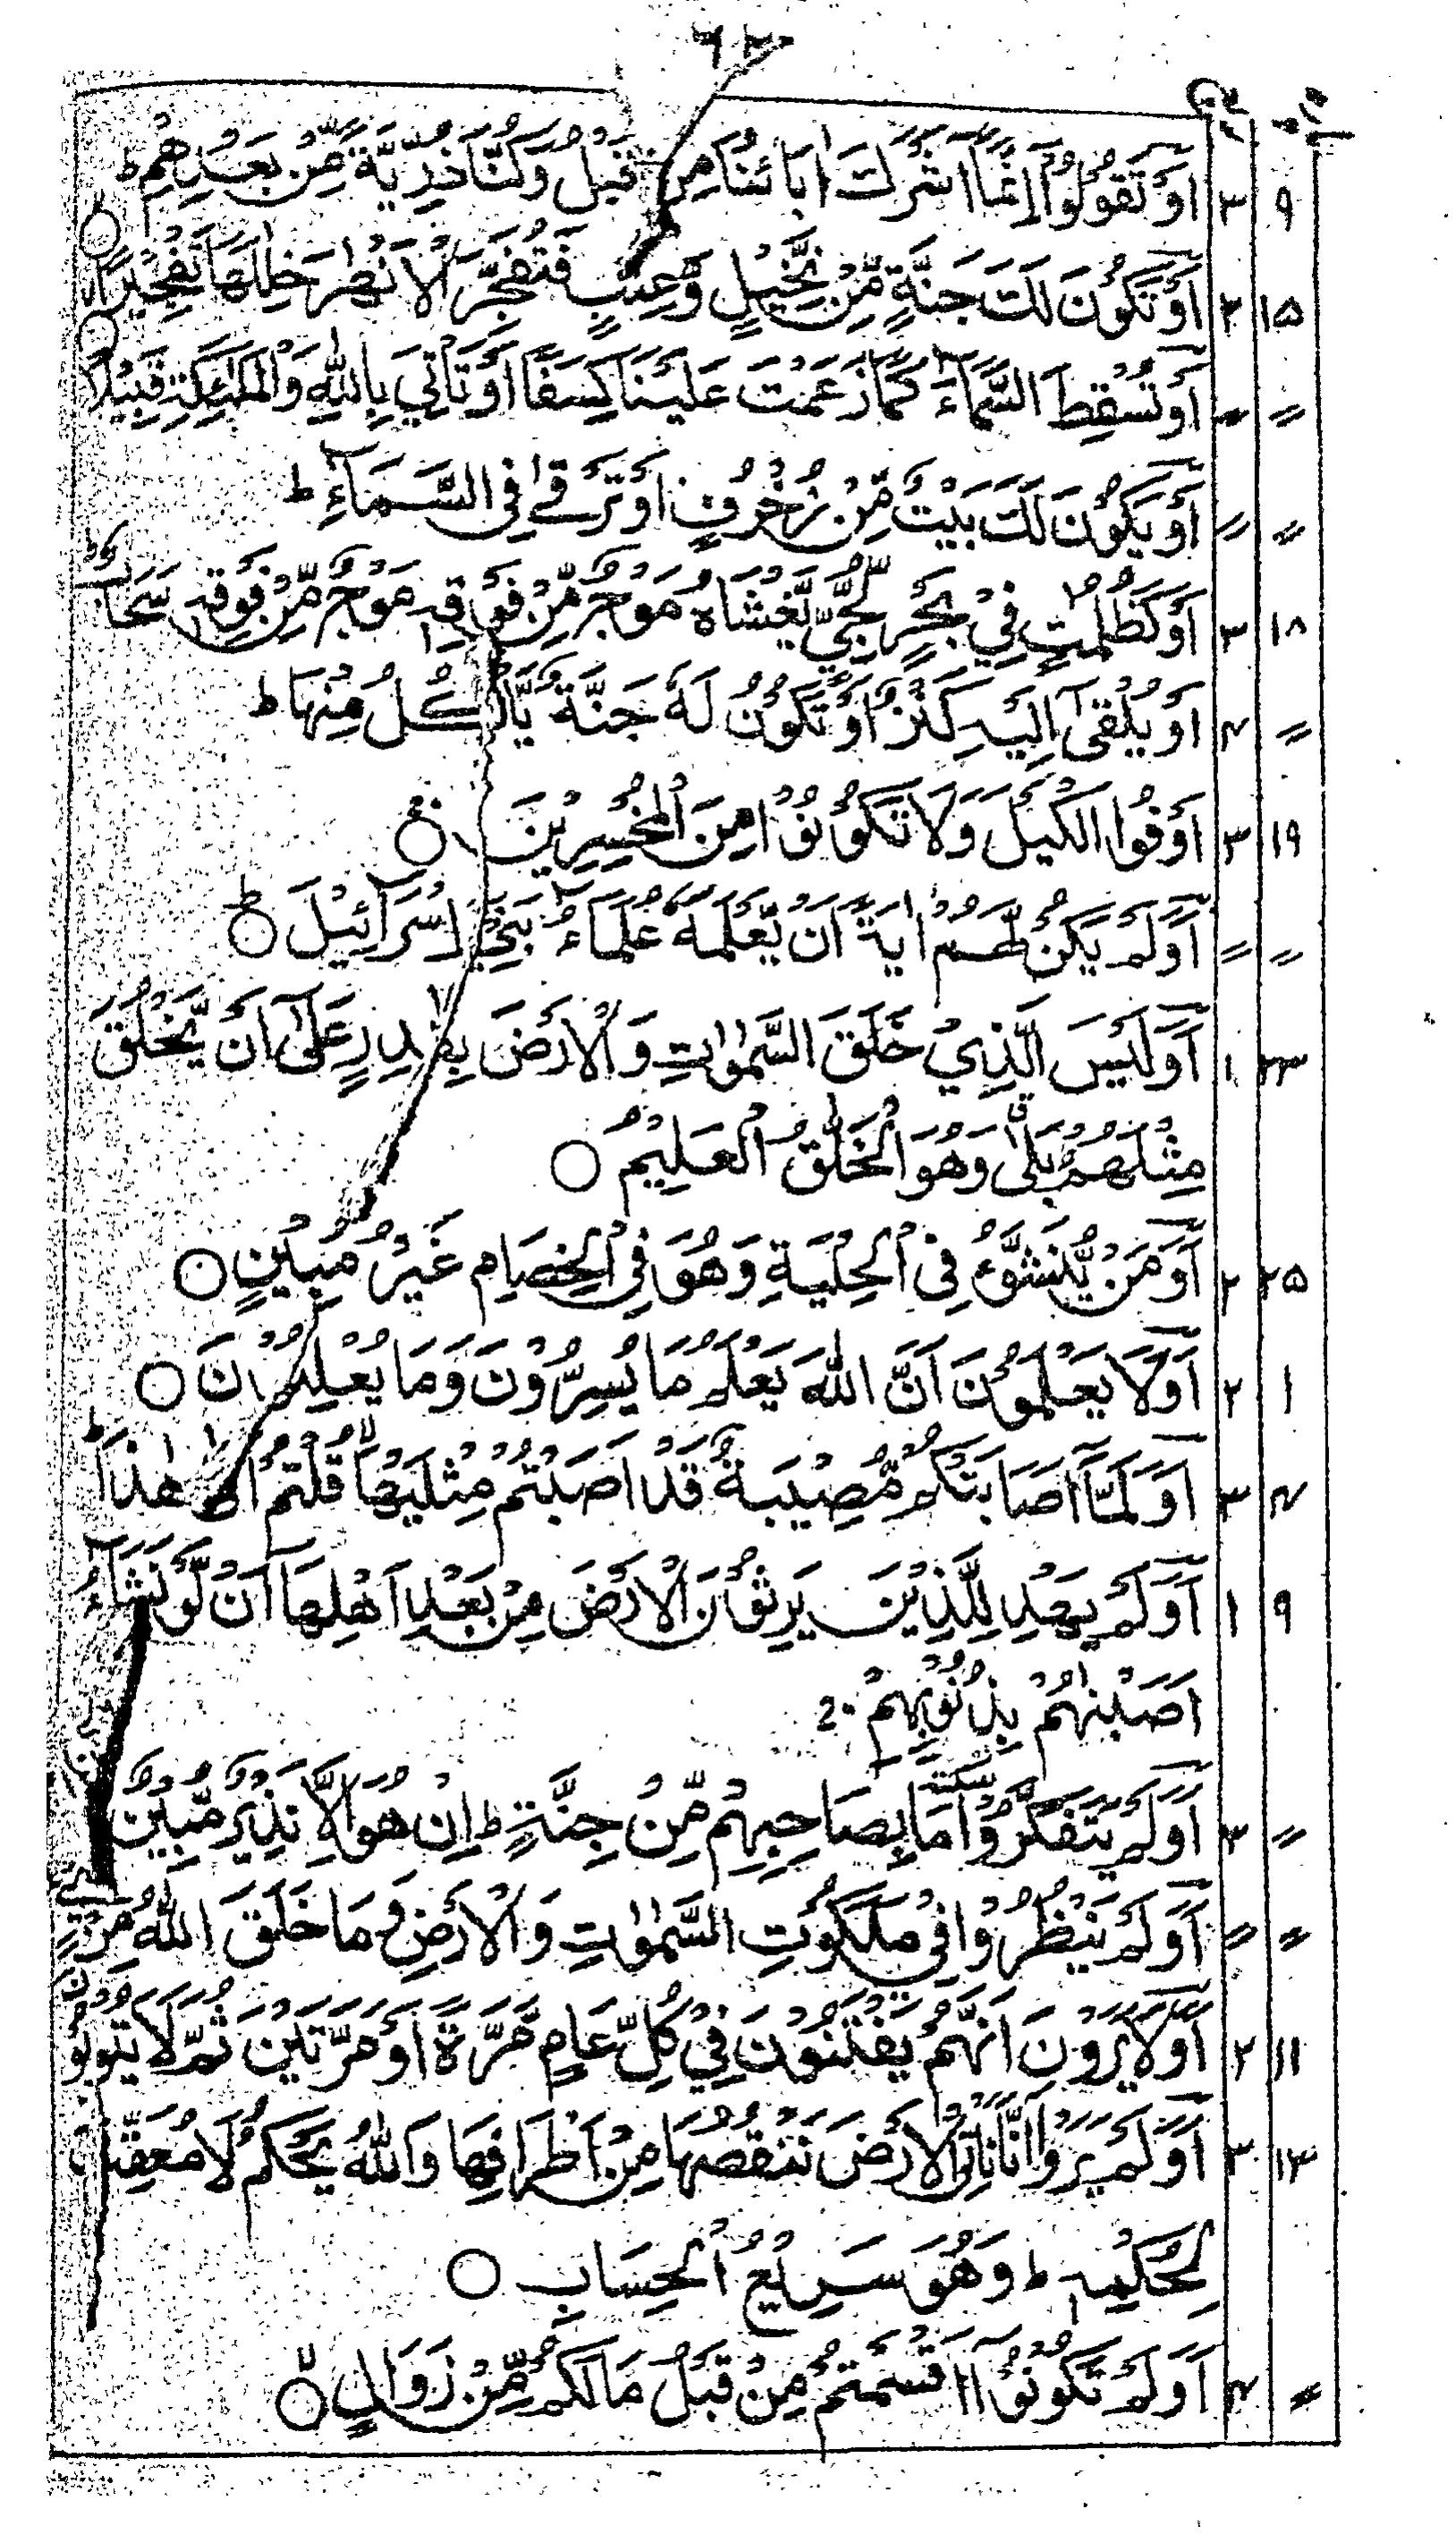 ۶۲
۹ ۳ اَوْ تَقُوْلُوْٓا اِنَّمَآ اَشْرَكَ اٰبَآئُنَا مِنْ قَبْلُ وَكُنَّا ذُرِّيَّةً مِّنْۢ بَعْدِهِمْ ط
۱۵ ۲ اَوْ تَكُوْنَ لَكَ جَنَّةٌ مِّنْ نَّخِيْلٍ وَّعِنَبٍ فَتُفَجِّرَ الْاَنْهٰرَ خِلٰلَهَا تَفْجِيْرًا ○
〃 〃 اَوْ تُسْقِطَ السَّمَآءَ كَمَا زَعَمْتَ عَلَيْنَا كِسَفًا اَوْ تَاْتِيَ بِاللّٰهِ وَالْمَلٰٓئِكَةِ قَبِيْلًا ○
〃 〃 اَوْ يَكُوْنَ لَكَ بَيْتٌ مِّنْ زُخْرُفٍ اَوْ تَرْقٰى فِى السَّمَآءِ ط
۱۸ ۳ اَوْ كَظُلُمٰتٍ فِيْ بَحْرٍ لُّجِّيٍّ يَّغْشٰاهُ مَوْجٌ مِّنْ فَوْقِهٖ مَوْجٌ مِّنْ فَوْقِهٖ سَحَابٌ ط
〃 ۴ اَوْ يُلْقٰٓى اِلَيْهِ كَنْزٌ اَوْ تَكُوْنُ لَهٗ جَنَّةٌ يَّاْكُلُ مِنْهَا ط
۱۹ ۳ اَوْفُوا الْكَيْلَ وَلَا تَكُوْنُوْا مِنَ الْمُخْسِرِيْنَ ○
〃 〃 اَوَلَمْ يَكُنْ لَّهُمْ اٰيَةً اَنْ يَّعْلَمَهٗ عُلَمٰٓؤُا بَنِيْٓ اِسْرَآئِيْلَ ○ ط
۲۳ ۱ اَوَلَيْسَ الَّذِيْ خَلَقَ السَّمٰوٰتِ وَالْاَرْضَ بِقٰدِرٍ عَلٰٓى اَنْ يَّخْلُقَ
مِثْلَهُمْ بَلٰى وَهُوَ الْخَلّٰقُ الْعَلِيْمُ ○
۲۵ ۲ اَوَمَنْ يُّنَشَّؤُ فِى الْحِلْيَةِ وَهُوَ فِى الْخِصَامِ غَيْرُ مُبِيْنٍ ○
۱ ۲ اَوَلَا يَعْلَمُوْنَ اَنَّ اللّٰهَ يَعْلَمُ مَا يُسِرُّوْنَ وَمَا يُعْلِنُوْنَ ○
۴ ۳ اَوَلَمَّآ اَصَابَتْكُمْ مُّصِيْبَةٌ قَدْ اَصَبْتُمْ مِثْلَيْهَا قُلْتُمْ اَنّٰى هٰذَا ط
۹ ۱ اَوَلَمْ يَهْدِ لِلَّذِيْنَ يَرِثُوْنَ الْاَرْضَ مِنْۢ بَعْدِ اَهْلِهَآ اَنْ لَّوْ نَشَآءُ
اَصَبْنٰهُمْ بِذُنُوْبِهِمْ
〃 ۳ اَوَلَمْ يَتَفَكَّرُوْا سكتة مَا بِصَاحِبِهِمْ مِّنْ جِنَّةٍ ط اِنْ هُوَ اِلَّا نَذِيْرٌ مُّبِيْنٌ
〃 〃 اَوَلَمْ يَنْظُرُوْا فِيْ مَلَكُوْتِ السَّمٰوٰتِ وَالْاَرْضِ وَمَا خَلَقَ اللّٰهُ مِنْ
۱۱ ۲ اَوَلَا يَرَوْنَ اَنَّهُمْ يُفْتَنُوْنَ فِيْ كُلِّ عَامٍ مَّرَّةً اَوْ مَرَّتَيْنِ ثُمَّ لَا يَتُوْبُوْنَ
۱۳ ۳ اَوَلَمْ يَرَوْا اَنَّا نَاْتِى الْاَرْضَ نَنْقُصُهَا مِنْ اَطْرَافِهَا وَاللّٰهُ يَحْكُمُ لَا مُعَقِّبَ
لِحُكْمِهٖ ط وَهُوَ سَرِيْعُ الْحِسَابِ ○
〃 ۴ اَوَلَمْ تَكُوْنُوْٓا اَقْسَمْتُمْ مِّنْ قَبْلُ مَا لَكُمْ مِّنْ زَوَالٍ ○